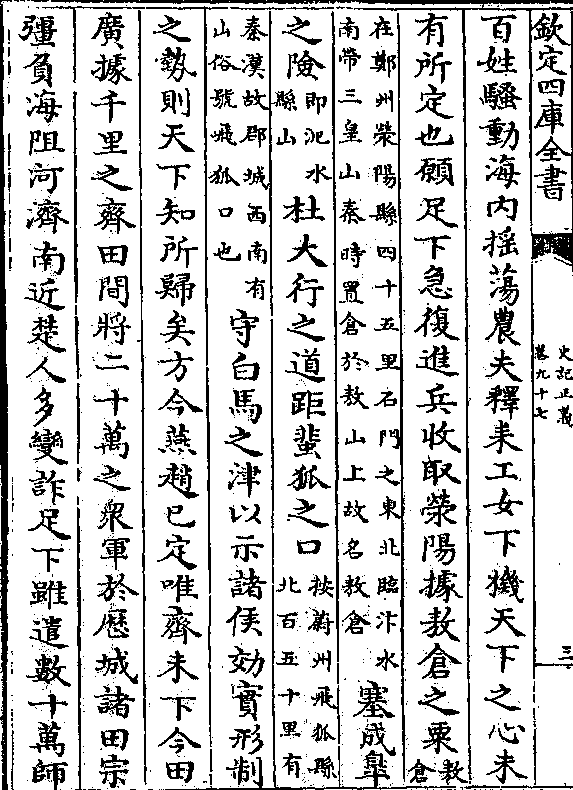 欽定四庫全書
史記正義
卷九十七
三
百姓騷動海内揺蕩農夫釋耒工女下機天下之心未
有所定也願足下急復進兵收取滎陽據敖倉之粟敖倉
在鄭州滎陽縣四十五里石門之東北臨汴水
南帶三皇山秦時置倉於敖山上故名敖倉
塞成臯
之險即汜水縣山杜大行之道距蜚狐之口按蔚州飛狐縣北百五十里有
秦漢故郡城西南有山俗號飛狐口也守白馬之津以示諸侯効實形制
之勢則天下知所歸矣方今燕趙已定唯齊未下今田
廣據千里之齊田間將二十萬之衆軍於歴城諸田宗
彊負海阻河濟南近楚人多變詐足下雖遣數十萬師